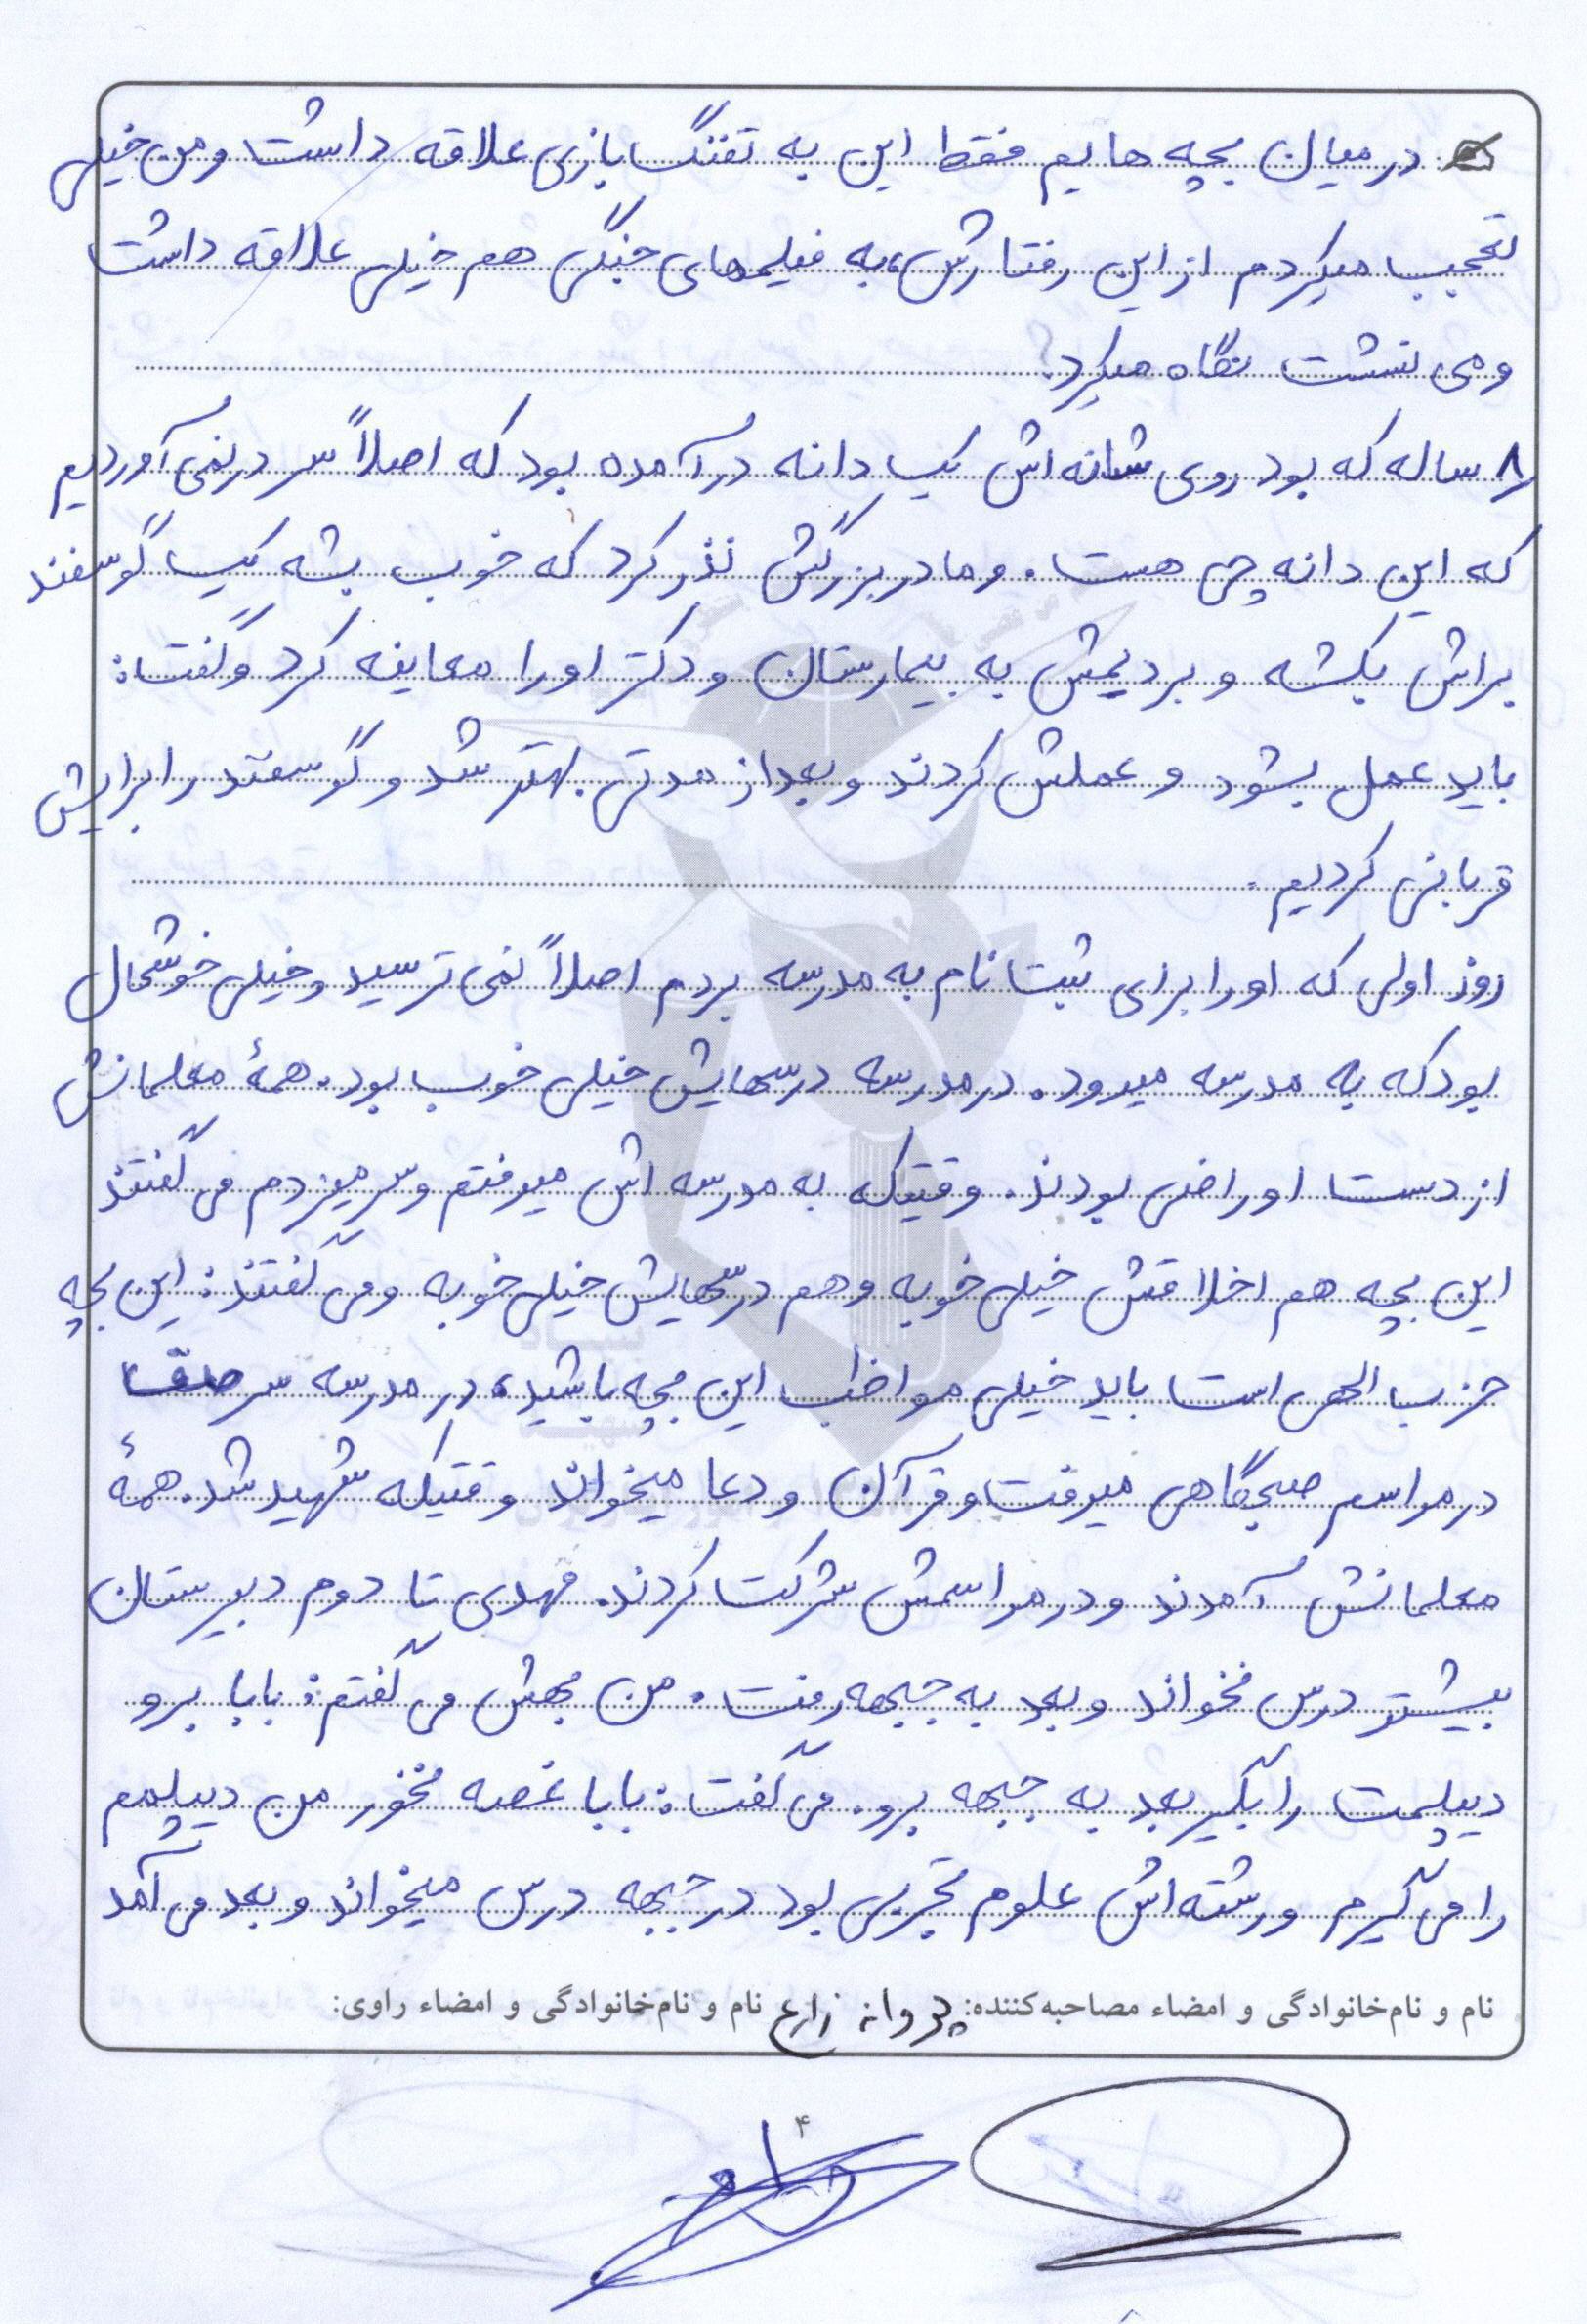 در میان بچه هایم فقط این به تفنگ بازی علاقه داشت و من خیلی
تعجب میکردم از این رفتارش، به فیلمهای جنگی هم خیلی علاقه داشت
و می نشست نگاه میکرد.
۸ ساله که بود روی شانه اش یک دانه در آمده بود که اصلاً سر در نمی آوردیم
که این دانه چی هست. و مادر بزرگش نذر کرد که خوب بشه یک گوسفند
براش بکشه و بردیمش به بیمارستان و دکتر او را معاینه کرد و گفت:
باید عمل بشود و عملش کردند و بعد از مدتی بهتر شد و گوسفند را برایش
قربانی کردیم.
روز اولی که او را برای ثبت نام به مدرسه بردم اصلاً نمی ترسید و خیلی خوشحال
بود که به مدرسه میرود. در مدرسه درسهایش خیلی خوب بود. همهٔ معلمانش
از دست او راضی بودند. وقتیکه به مدرسه اش میرفتم و سر میزدم می گفتند
این بچه هم اخلاقش خیلی خوبه و هم درسهایش خیلی خوبه و می گفتند: این بچه
حزب الهی است باید خیلی مواظب این بچه باشید، در مدرسه سر صف
در مراسم صبحگاهی میرفت و قرآن و دعا میخواند وقتیکه شهید شد. همهٔ
معلمانش آمدند و در مراسمش شرکت کردند. مهدی تا دوم دبیرستان
بیشتر درس نخواند و بعد به جبهه رفت. من بهش می گفتم: بابا برو
دیپلمت را بگیر بعد به جبهه برو. می گفت: بابا غصه نخور من دیپلمم
را می گیرم و رشته اش علوم تجربی بود در جبهه درس میخواند و بعد می آمد
نام و نام‌خانوادگی و امضاء مصاحبه‌کننده: پروانه زارع نام و نام‌خانوادگی و امضاء راوی:
۴